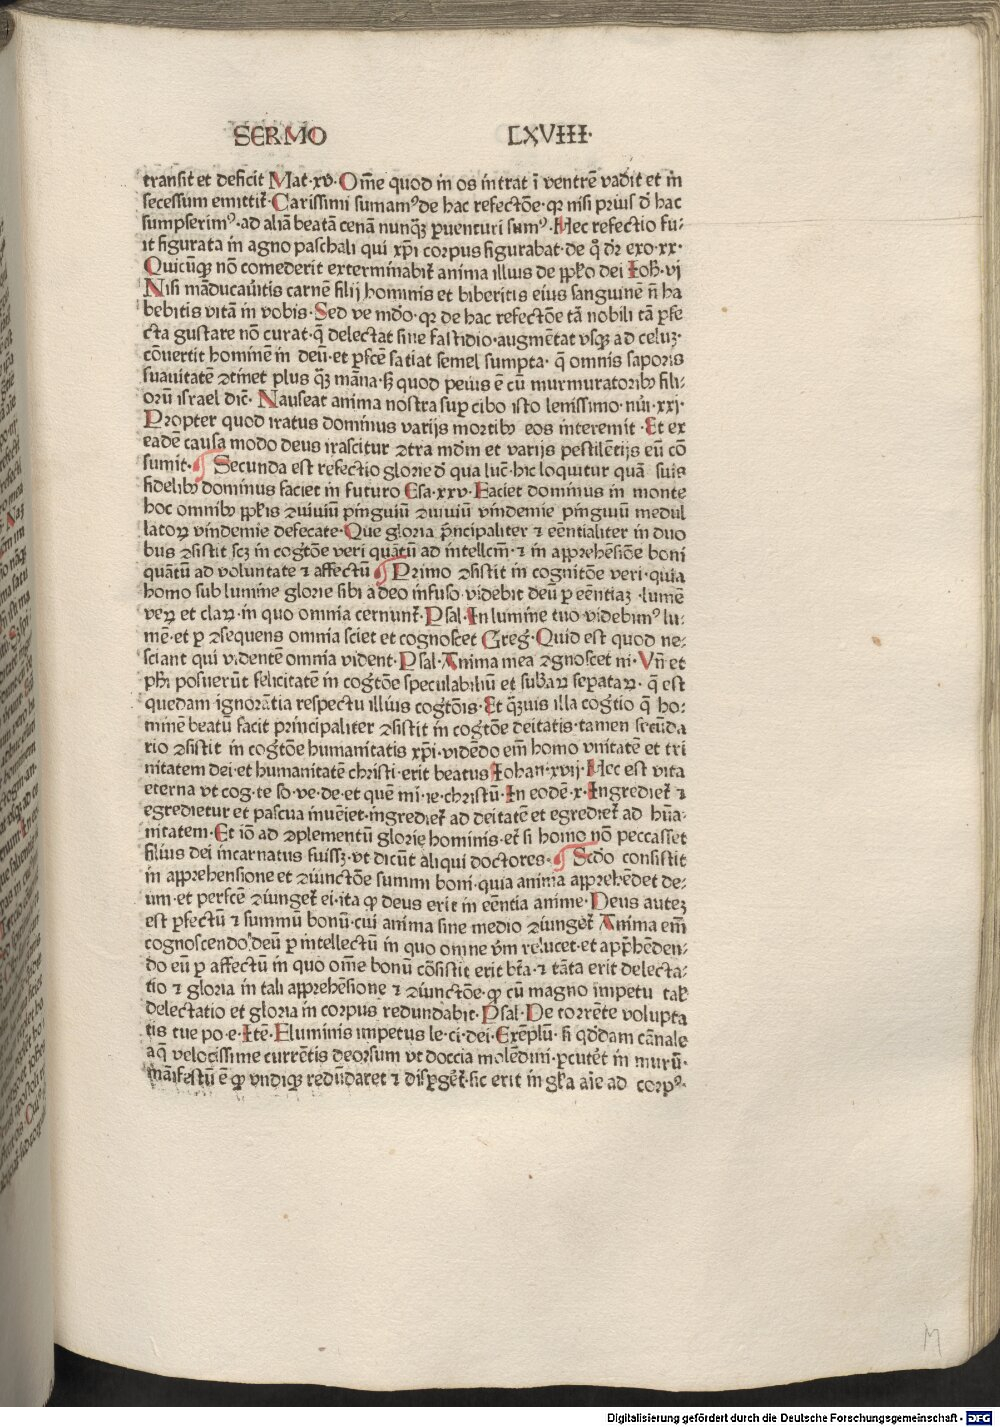 SERMO LXVIII·
transit et deficit Mat·xv· Om̄e quod in os intrat ī ventrē vadit et in̄
secessum emittit᷑· Carissimi sumamꝰ de hac refectōe· qꝛ nisi prius d̄ hac
sumpserimꝰ· ad aliā beatā cenā nunqꝫ ꝑuenturi sumꝰ· Hec refectio fu-
it figurata in agno paschali qui xp̄i corpus figurabat· de q̄ dr̄ exo·xx·
Quicūqꝫ nō comederit exterminabit᷑ anima illius de ppl̄o dei Ioh̄·vj
Nisi māducaūitis carnē filij hominis et biberitis eius sanguinē n̄ ha
bebitis vitā in vobis· Sed ve mdo· qꝛ de hac refectōe tā nobili tā ꝑfe
cta gustare nō curat· q̄ delectat sine fastidio· augmētat vsqꝫ ad celuꝫ·
cōuertit hominē in deū· et ꝑfcē satiat semel sumpta· q̄ omnis saporis
suauitatē ꝯtinet plus qꝫ māna· sꝫ quod peius ē cū murmuratoribꝰ fili-
orū israel dic̄t· Nauseat anima nostra suꝑ cibo isto leuissimo· nūi·xxj·
Propter quod iratus dominus varijs mortibꝰ eos interemit· Et ex
eadē causa modo deus irascitur ꝯtra mdm̄ et varijs pestilētijs eū cō
sumit· Secunda est refectio glorie d̄ qua luc̄· hic loquitur quā suis
fidelibꝰ dominus faciet in futuro Esa·xxv· Faciet dominus in monte
hoc omnibꝰ ppl̄is ꝯuiuiū pinguiū ꝯuiuiū vindemie pinguiū medul
latoꝝ vindemie defecate· Que gloria p̄ncipaliter ⁊ eēntialiter in duo
bus ꝯsistit scꝫ in cogtōe veri quātū ad intellcm̄· ⁊ in apprehēsiōe boni
quātū ad voluntate ⁊ affectū Primo ꝯsistit in cognitōe veri· quia
homo sub lumine glorie sibi a deo infuso videbit deū ꝑ eēntiaꝫ· lumē
veꝝ et claꝝ in quo omnia cernunt᷑· Psal· In lumine tuo videbimꝰ lu-
mē· et ꝑ ꝯsequens omnia sciet et cognoscet Greḡ· Quid est quod ne-
sciant qui videntē omnia vident· Psal· Anima mea ꝯgnoscet ni· Vn̄ et
ph̄i posuerūt felicitatē in cogtōe speculabiliū et sub̄aꝝ seꝑataꝝ· q̄ est
quedam ignorātia respectu illius cogtōis· Et qꝫuis illa cogtio q̄ ho-
minē beatū facit principaliter ꝯsistit in cogtōe deitatis· tamen secūda
rio ꝯsistit in cogtōe humanitatis xp̄i· vidēdo em̄ homo vnitatē et tri
nitatem dei· et humanitatē christi· erit beatus Johan·xvij· Hec est vita
eterna vt cog·te so·ve·de·et quē mi·ie·christū· In eodē·x· Ingrediet᷑ ⁊
egredietur et pascua inuēiet· ingrediet᷑ ad deitatē et egrediet᷑ ad hūa-
nitatem· Et iō ad ꝯplementū glorie hominis· et᷑ si homo nō peccasset
filius dei incarnatus fuissꝫ· vt dicūt aliqui doctores· Scdo consistit
in apprehensione et ꝯiunctōe summi boni· quia anima apprehēdet de-
um· et perfcē ꝯiunget᷑ ei· ita ꝙ deus erit in eēntia anime· Deus auteꝫ
est ꝑfectū ⁊ summū bonū· cui anima sine medio ꝯiunget᷑ Anima em̄
cognoscendo deū ꝑ intellectū in quo omne vm̄ relucet· et appr̄hēden-
do eū ꝑ affectū in quo om̄e bonū cōsistit erit bt̄a· ⁊ tāta erit delecta-
tio ⁊ gloria in tali apprehēsione ⁊ ꝯiunctōe· ꝙ cū magno impetu tal̄
delectatio et gloria in corpus redundabit· Psal· De torrēte volupta
tis tue po·e· Itē· Fluminis impetus le·ci·dei· Exēplū· si qddam cānale
aq̄ velocissime currētis deorsum vt doccia molēdini· ꝑcutet in murū·
māifestū ē ꝙ vndiqꝫ redūdaret ⁊ disꝑget᷑· sic erit in gl̄a aīe ad corpꝰ·
M
Digitalisierung gefördert durch die Deutsche Forschungsgemeinschaft - DFG